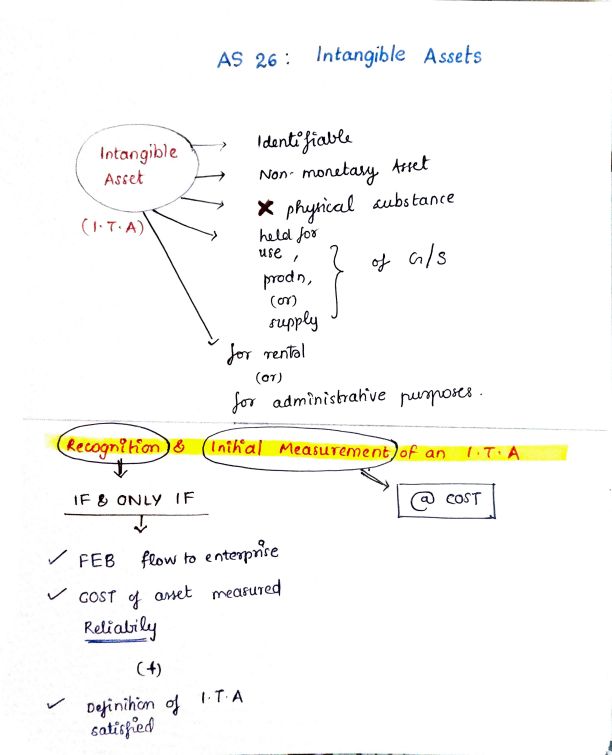 AS 26: Intangible Assets
Intangible
Asset
(I.T.A)
Identifiable
Non-monetary Asset
✗ physical substance
held for
use,
prodn,
(or)
supply
of G/S
for rental
(or)
for administrative purposes.
Recognition & Initial Measurement of an I.T.A
IF & ONLY IF
@ COST
✓ FEB flow to enterprise
✓ COST of asset measured
Reliabily
(+)
✓ Definition of I.T.A
satisfied